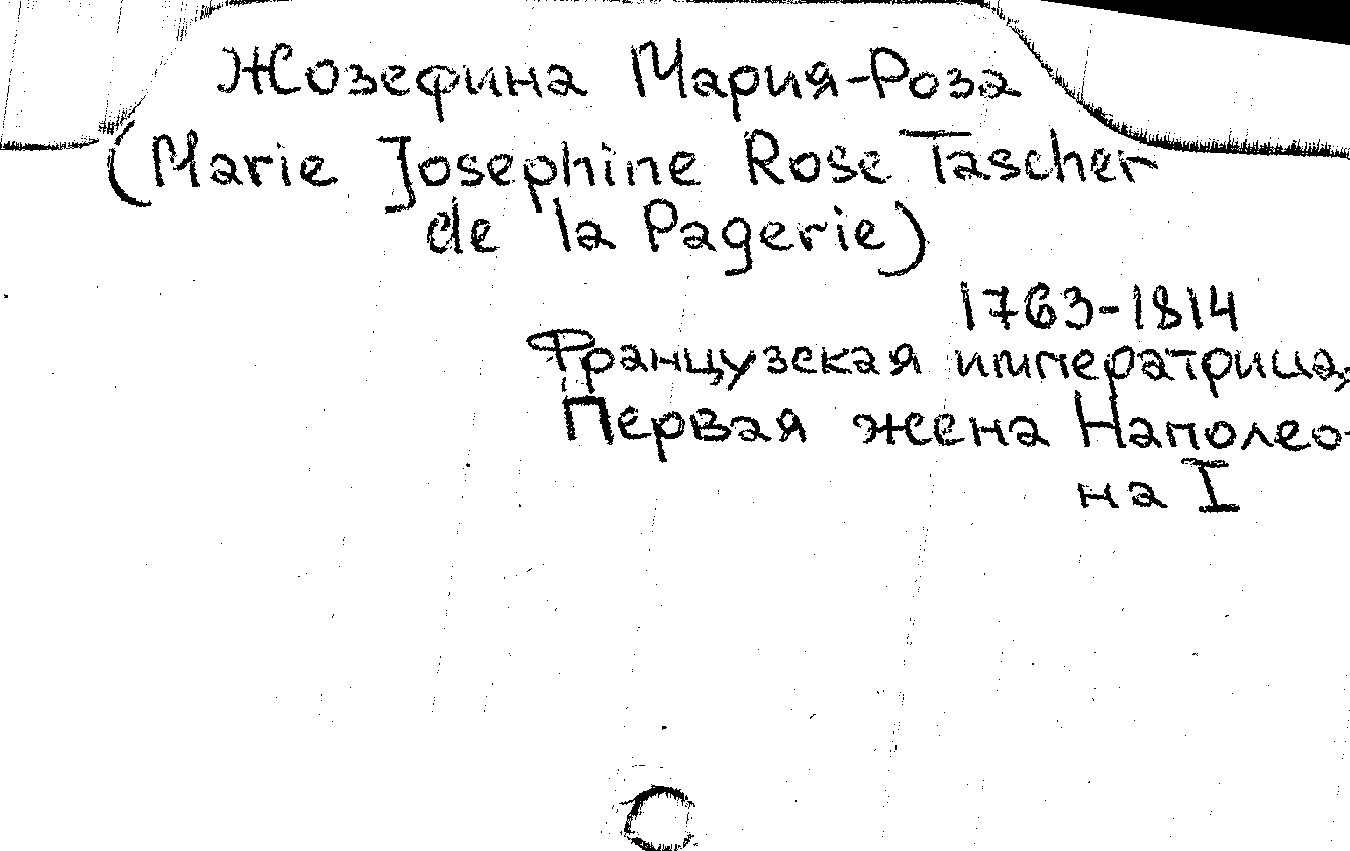 Жозефина Мария-Роза
(Marie Josephine Rose Tascher
de la Pagerie)
1763-1814
Французская императрица,
Первая жена Наполео-
на I